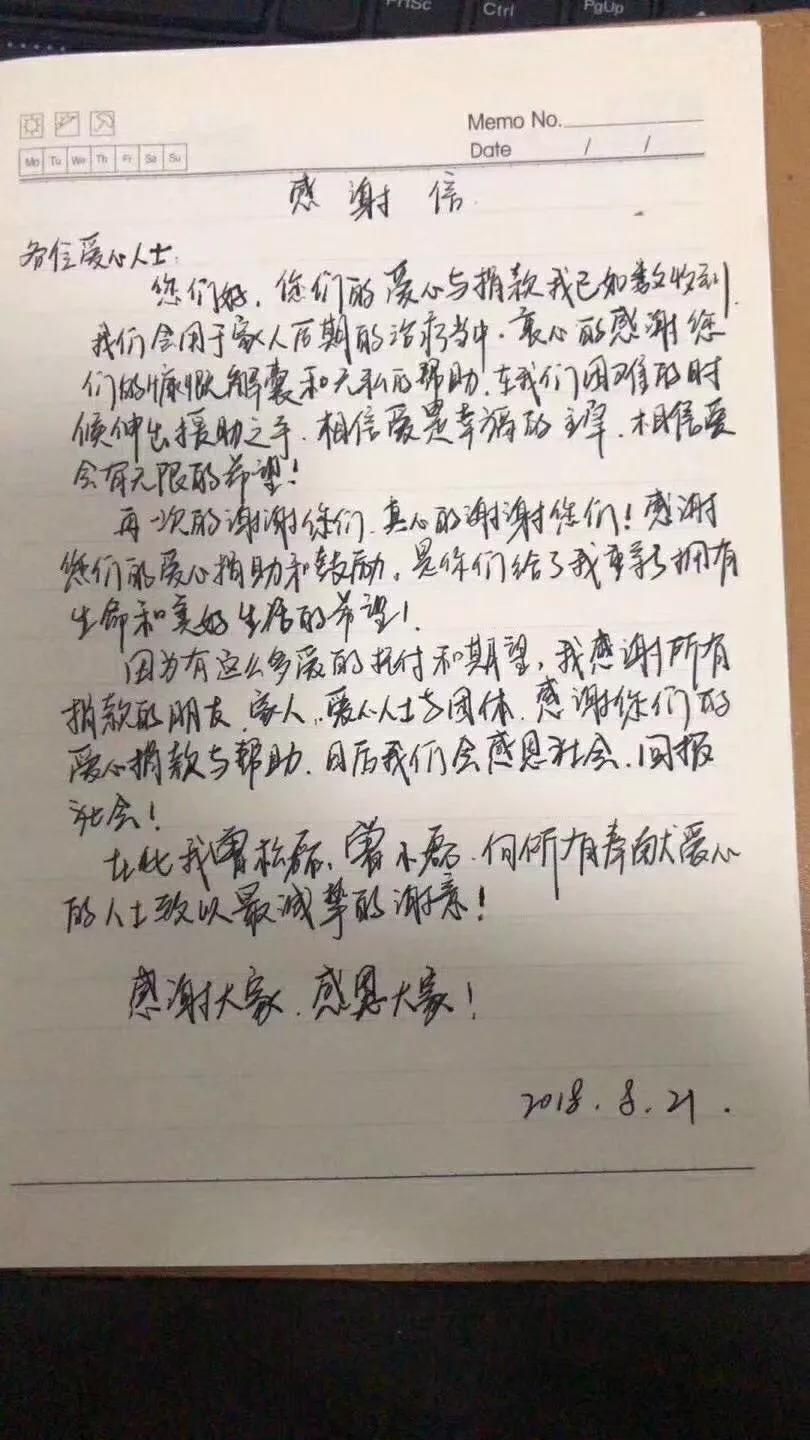 PrtSc Ctrl PgUp
Memo No.
Mo Tu We Th Fr Sa Su
Date / /
感谢信
各位爱心人士:
您们好,您们的爱心与捐款我已如数收到
我们会用于家人后期的治疗当中.衷心的感谢您
们的慷慨解囊和无私的帮助.在我们困难的时
候伸出援助之手.相信爱是幸福的主宰.相信爱
会有无限的希望!
再一次的谢谢你们.真心的谢谢您们!感谢
您们的爱心捐助和鼓励。是你们给了我重新拥有
生命和美好生活的希望!
因为有这么多爱的托付和期望,我感谢所有
捐款的朋友.家人.爱心人士与团体.感谢你们的
爱心捐款与帮助.日后我们会感恩社会.回报
社会!
在此我曾松磊、曾小磊.向所有奉献爱心
的人士致以最诚挚的谢意!
感谢大家.感恩大家!
2018.8.21.